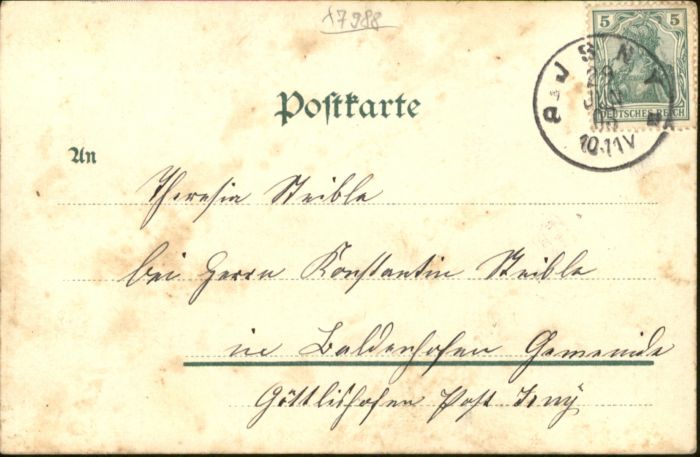 17988
5 5
DEUTSCHES REICH
JSNY
10-11V
Postkarte
An
Theresia Steible
bei Herrn Konstantin Steible
in Baldenhofen Gemeinde
Göttlishofen Post Isny